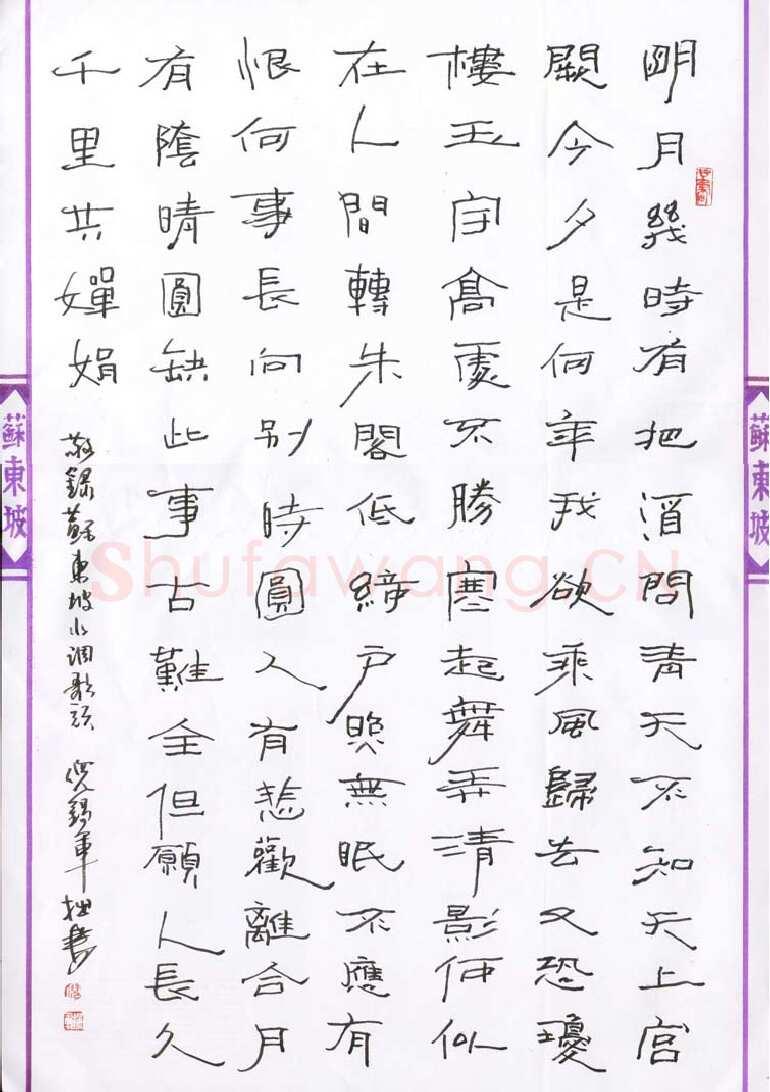 明月幾時有把酒問青天不知天上宮
闕今夕是何年我欲乘風歸去又恐瓊
樓玉宇高處不勝寒起舞弄清影何似
在人間轉朱閣低綺戶照無眠不應有
恨何事長向別時圓人有悲歡離合月
有陰晴圓缺此事古難全但願人長久
千里共嬋娟
敬錄蘇東坡水調歌頭 倪錫軍拙書
蘇東坡
蘇東坡
Shufawang.CN